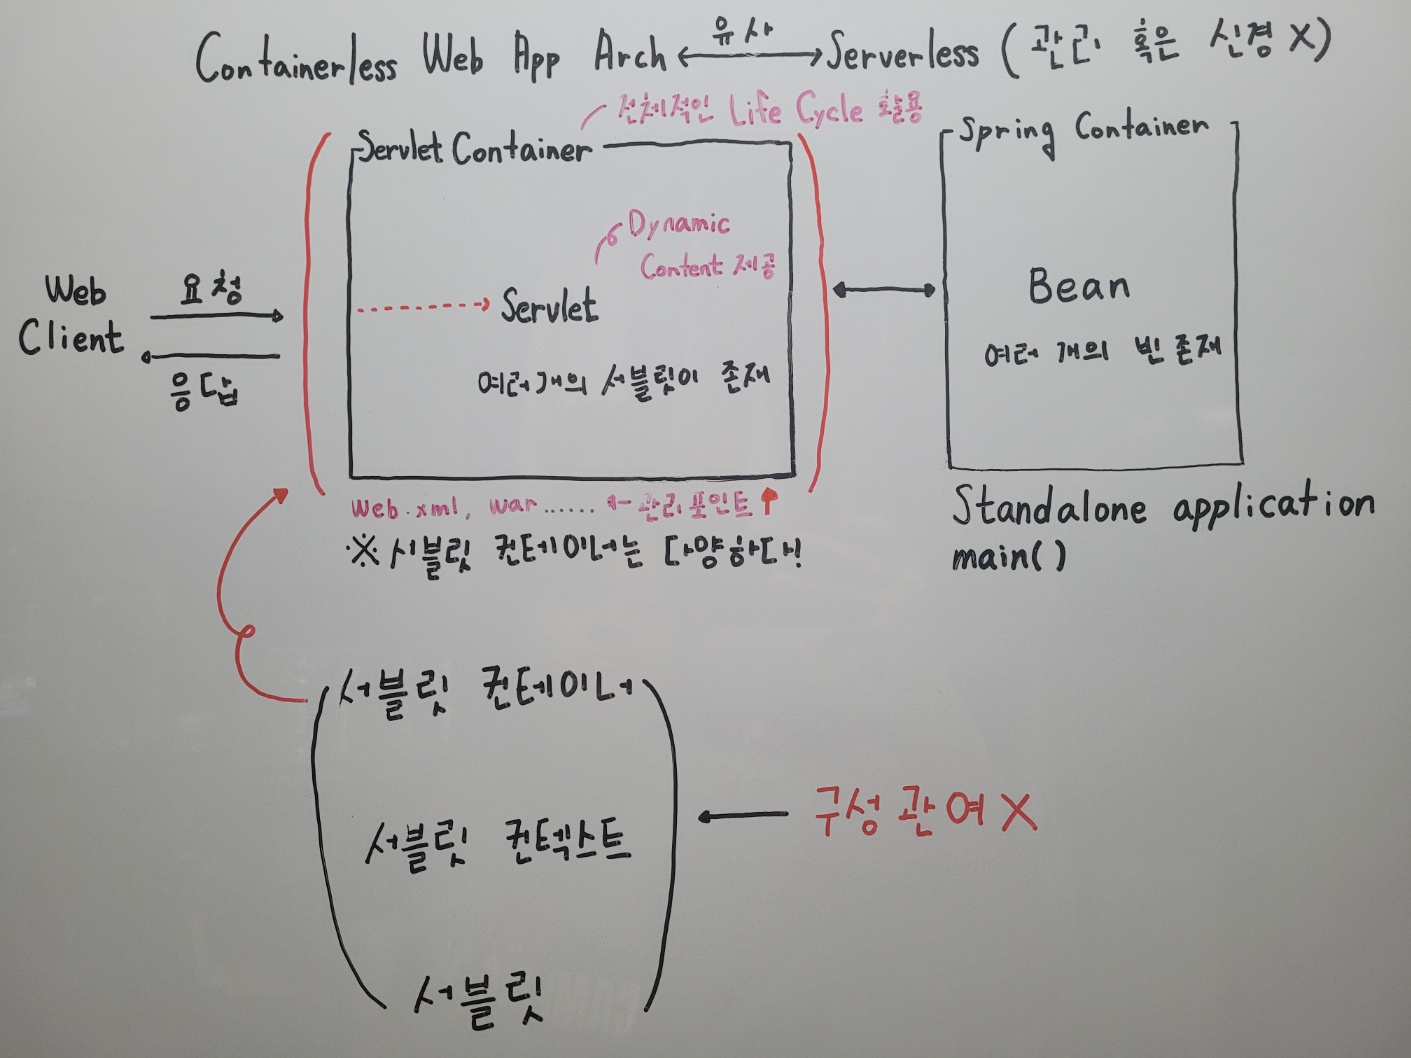 Containerless Web App Arch ↔ 유사 Serverless (관리 혹은 신경 X)
전체적인 Life Cycle 활용
Servlet Container
Spring Container
Dynamic
Content 제공
Web
Client
요청
응답
Servlet
여러개의 서블릿이 존재
Bean
여러 개의 빈 존재
Web.xml, war...... ← 관리 포인트 ↑
※ 서블릿 컨테이너는 다양하다!
Standalone application
main()
서블릿 컨테이너
서블릿 컨텍스트
서블릿
구성 관여 X